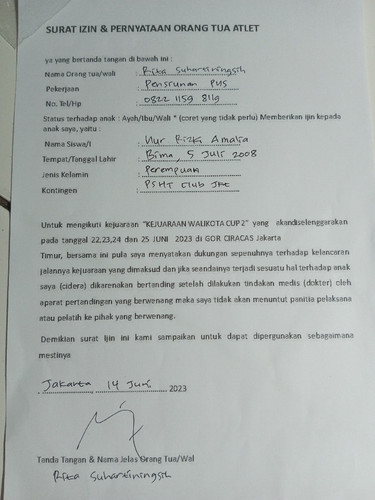 SURAT IZIN & PERNYATAAN ORANG TUA ATLET
ya yang bertanda tangan di bawah ini :
Nama Orang tua/wali : Rita Suhartiningsih
Pekerjaan : Pensiunan PNS
No. Tel/Hp : 0822 1159 8119
Status terhadap anak : Ayah/Ibu/Wali * (coret yang tidak perlu) Memberikan ijin kepada
anak saya, yaitu :
Nama Siswa/I : Nur Rizki Amalia
Tempat/Tanggal Lahir : Bima, 5 Juli 2008
Jenis Kelamin : Perempuan
Kontingen : PSHT Club JKT
Untuk mengikuti kejuaraan "KEJUARAAN WALIKOTA CUP 2" yang akandiselenggarakan
pada tanggal 22,23,24 dan 25 JUNI 2023 di GOR CIRACAS Jakarta
Timur, bersama ini pula saya menyatakan dukungan sepenuhnya terhadap kelancaran
jalannya kejuaraan yang dimaksud dan jika seandainya terjadi sesuatu hal terhadap anak
saya (cidera) dikarenakan bertanding setelah dilakukan tindakan medis (dokter) oleh
aparat pertandingan yang berwenang maka saya tidak akan menuntut panitia pelaksana
atau pelatih ke pihak yang berwenang.
Demikian surat Ijin ini kami sampaikan untuk dapat dipergunakan sebagaimana
mestinya
Jakarta 14 Juni 2023
Tanda Tangan & Nama Jelas Orang Tua/Wal
Rita Suhartiningsih